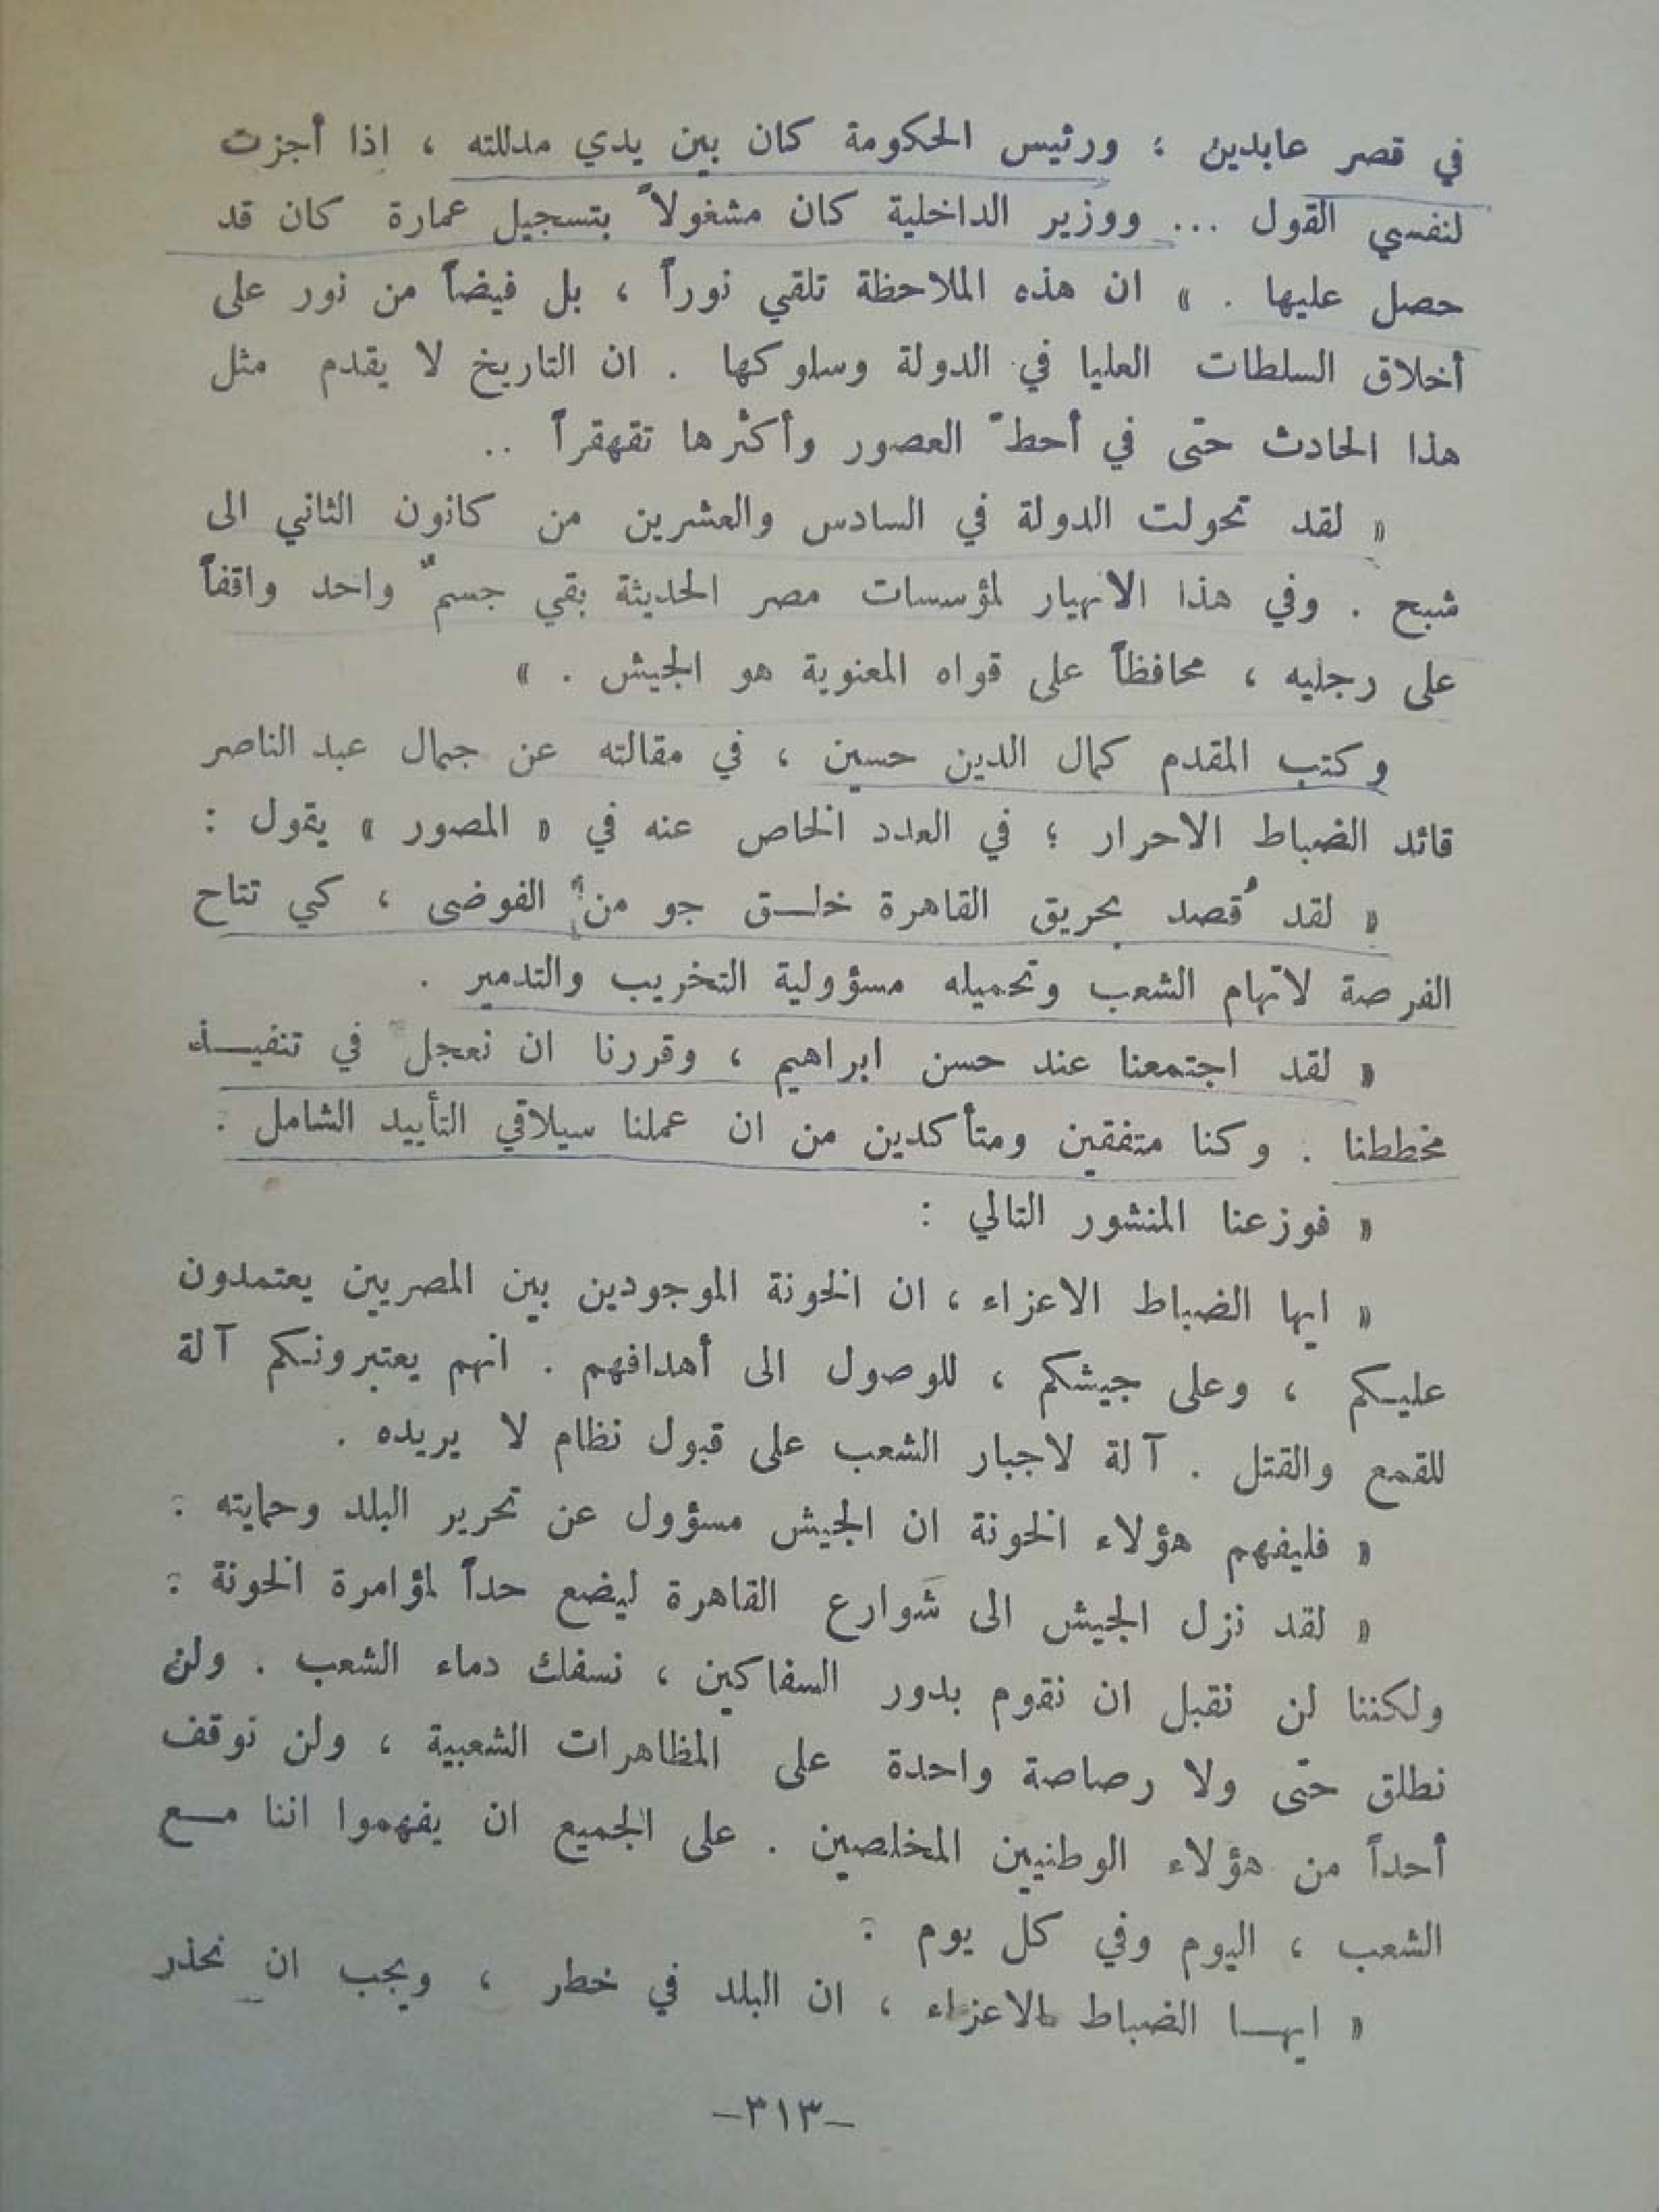 في قصر عابدين ؛ ورئيس الحكومة كان بين يدي مدللته ، اذا أجزت
لنفسي القول ... ووزير الداخلية كان مشغولاً بتسجيل عمارة كان قد
حصل عليها . » ان هذه الملاحظة تلقي نوراً ، بل فيضاً من نور على
أخلاق السلطات العليا في الدولة وسلوكها . ان التاريخ لا يقدم مثل
هذا الحادث حتى في أحطّ العصور وأكثرها تقهقراً ..
« لقد تحولت الدولة في السادس والعشرين من كانون الثاني الى
شبح . وفي هذا الانهيار لمؤسسات مصر الحديثة بقي جسمٌ واحد واقفاً
على رجليه ، محافظاً على قواه المعنوية هو الجيش . »
وكتب المقدم كمال الدين حسين ، في مقالته عن جمال عبد الناصر
قائد الضباط الاحرار ؛ في العدد الخاص عنه في « المصور » يقول :
« لقد قُصد بحريق القاهرة خلـق جو من الفوضى ، كي تتاح
الفرصة لاتهام الشعب وتحميله مسؤولية التخريب والتدمير .
« لقد اجتمعنا عند حسن ابراهيم ، وقررنا ان نعجل في تنفيـذ
مخططنا . وكنا متفقين ومتأكدين من ان عملنا سيلاقي التأييد الشامل .
« فوزعنا المنشور التالي :
« ايها الضباط الاعزاء ، ان الخونة الموجودين بين المصريين يعتمدون
عليـكم ، وعلى جيشكم ، للوصول الى أهدافهم . انهم يعتبرونـكم آلة
للقمع والقتل . آلة لاجبار الشعب على قبول نظام لا يريده .
« فليفهم هؤلاء الخونة ان الجيش مسؤول عن تحرير البلد وحمايته .
« لقد نزل الجيش الى شوارع القاهرة ليضع حداً لمؤامرة الخونة .
ولكننا لن نقبل ان نقوم بدور السفاكين ، نسفك دماء الشعب . ولن
نطلق حتى ولا رصاصة واحدة على المظاهرات الشعبية ، ولن نوقف
أحداً من هؤلاء الوطنيين المخلصين . على الجميع ان يفهموا اننا مـع
الشعب ، اليوم وفي كل يوم .
« ايهـا الضباط الاعزاء ، ان البلد في خطر ، ويجب ان نحذر
–٣١٣–